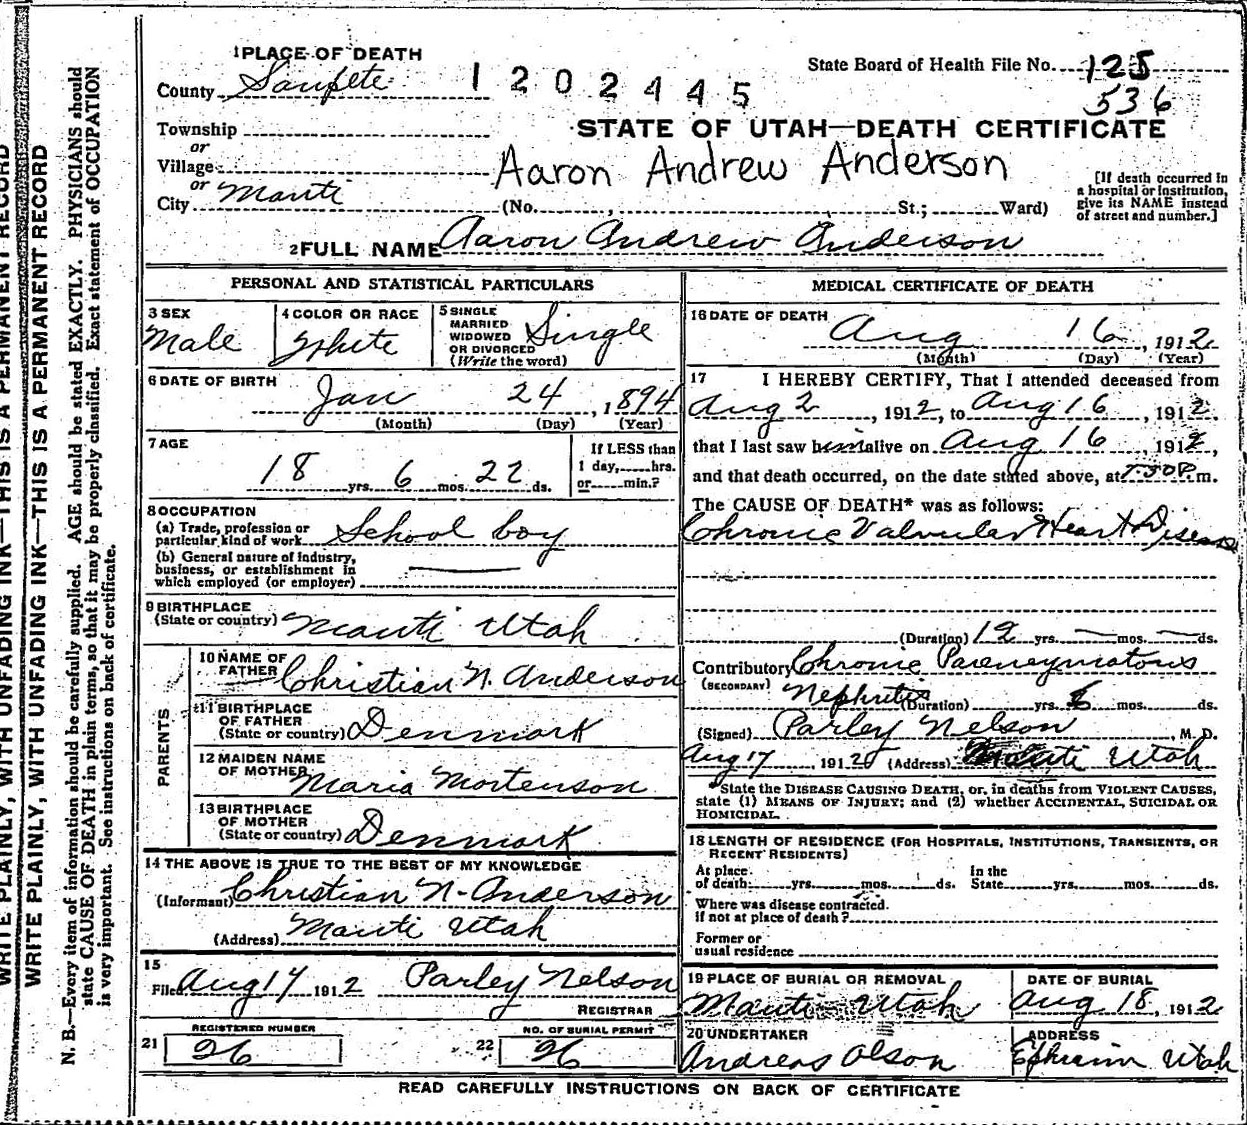 WRITE PLAINLY, WITH UNFADING INK—THIS IS A PERMANENT RECORD
WRITE PLAINLY, WITH UNFADING INK—THIS IS A PERMANENT RECORD
N. B.—Every item of information should be carefully supplied. AGE should be stated EXACTLY. PHYSICIANS should
state CAUSE OF DEATH in plain terms, so that it may be properly classified. Exact statement of OCCUPATION
is very important. See instructions on back of certificate.
1 PLACE OF DEATH
County Sanpete 1202445 State Board of Health File No. 125
536
Township
or
STATE OF UTAH—DEATH CERTIFICATE
Village
Aaron Andrew Anderson
or
City Manti (No. , St.; Ward)
[If death occurred in
a hospital or institution,
give its NAME instead
of street and number.]
2 FULL NAME Aaron Andrew Anderson
PERSONAL AND STATISTICAL PARTICULARS
3 SEX
Male
4 COLOR OR RACE
White
5 SINGLE
MARRIED
WIDOWED
OR DIVORCED
(Write the word)
Single
6 DATE OF BIRTH
Jan 24, 1894
(Month) (Day) (Year)
7 AGE
18 yrs. 6 mos. 22 ds.
If LESS than
1 day, hrs.
or min.?
8 OCCUPATION
(a) Trade, profession or
particular kind of work School boy
(b) General nature of industry,
business, or establishment in
which employed (or employer)
9 BIRTHPLACE
(State or country) Manti Utah
PARENTS
10 NAME OF
FATHER Christian N. Anderson
11 BIRTHPLACE
OF FATHER
(State or country) Denmark
12 MAIDEN NAME
OF MOTHER Maria Mortenson
13 BIRTHPLACE
OF MOTHER
(State or country) Denmark
14 THE ABOVE IS TRUE TO THE BEST OF MY KNOWLEDGE
(Informant) Christian N. Anderson
(Address) Manti Utah
15
Filed Aug 17 1912 Parley Nelson
REGISTRAR
REGISTERED NUMBER
21 26
NO. OF BURIAL PERMIT
22 26
MEDICAL CERTIFICATE OF DEATH
16 DATE OF DEATH
Aug 16, 1912
(Month) (Day) (Year)
17 I HEREBY CERTIFY, That I attended deceased from
Aug 2, 1912, to Aug 16, 1912,
that I last saw him alive on Aug 16, 1912,
and that death occurred, on the date stated above, at 7.30 P. m.
The CAUSE OF DEATH* was as follows:
Chronic Valvular Heart Disease
(Duration) 12 yrs. — mos. — ds.
Contributory Chronic Pareneymatous
(SECONDARY) Nephritis (Duration) yrs. 6 mos. ds.
(Signed) Parley Nelson, M. D.
Aug 17, 1912 (Address) Manti Utah
*State the DISEASE CAUSING DEATH, or, in deaths from VIOLENT CAUSES,
state (1) MEANS OF INJURY; and (2) whether ACCIDENTAL, SUICIDAL OR
HOMICIDAL.
18 LENGTH OF RESIDENCE (FOR HOSPITALS, INSTITUTIONS, TRANSIENTS, OR
RECENT RESIDENTS)
At place
of death yrs. mos. ds.
In the
State yrs. mos. ds.
Where was disease contracted.
if not at place of death?
Former or
usual residence
19 PLACE OF BURIAL OR REMOVAL
Manti Utah
DATE OF BURIAL
Aug 18, 1912
20 UNDERTAKER
Andreas Olson
ADDRESS
Ephraim Utah
READ CAREFULLY INSTRUCTIONS ON BACK OF CERTIFICATE